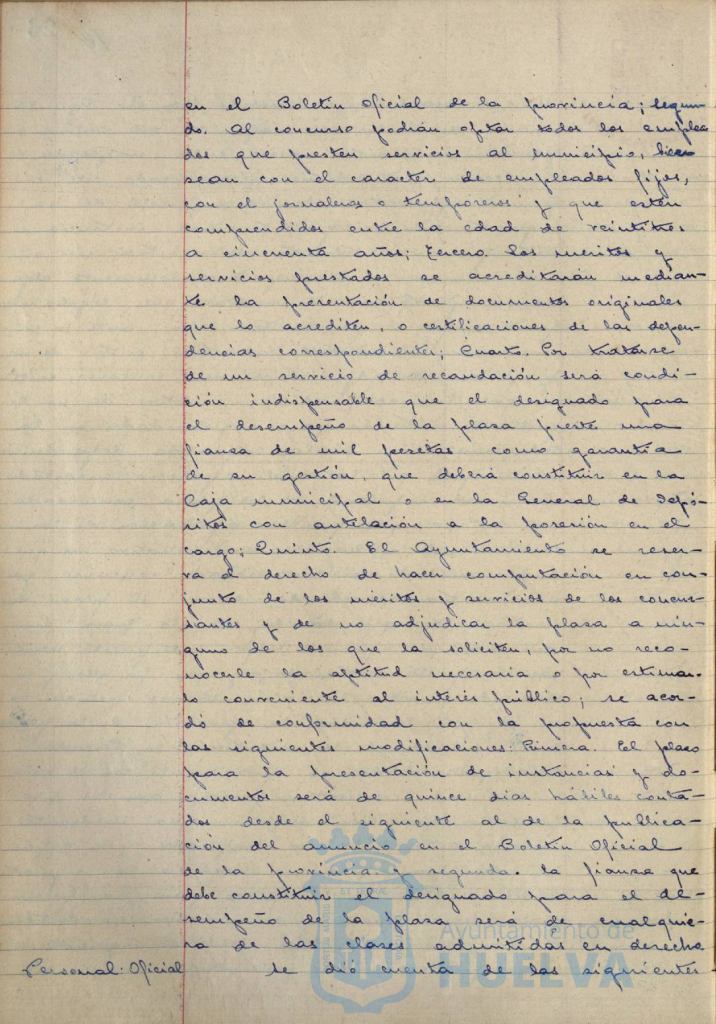 en el Boletín Oficial de la provincia; segun-
do. Al concurso podrán optar todos los emplea
dos que presten servicios al municipio, bien
sean con el caracter de empleados fijos,
con el jornaleros o temporeros y que estén
comprendidos entre la edad de veintitres
a cincuenta años; Tercero. Los meritos y
servicios prestados se acreditarán median-
te la presentación de documentos originales
que lo acrediten, o certificaciones de las depen-
dencias correspondientes; Cuarto. Por tratarse
de un servicio de recaudación será condi-
ción indispensable que el designado para
el desempeño de la plaza preste una
fianza de mil pesetas como garantía
de su gestión, que deberá constituir en la
Caja municipal o en la General de Depó-
sitos con antelación a la posesión en el
cargo; Quinto. El Ayuntamiento se reser-
va el derecho de hacer computación en con-
junto de los méritos y servicios de los concur-
santes y de no adjudicar la plaza a nin-
guno de los que la soliciten, por no reco-
nocerle la aptitud necesaria o por estimar-
lo conveniente al interés público; se acor-
dó de conformidad con la propuesta con
las siguientes modificaciones: Primera. El plazo
para la presentación de instancias y do-
cumentos será de quince dias hábiles conta-
dos desde el siguiente al de la publica-
ción del anuncio en el Boletín Oficial
de la provincia y segunda. La fianza que
debe constituir el designado para el de-
sempeño de la plaza será de cualquie-
ra de las clases admitidas en derecho
Personal: Oficial Se dió cuenta de las siguientes
Ayuntamiento de
HUELVA